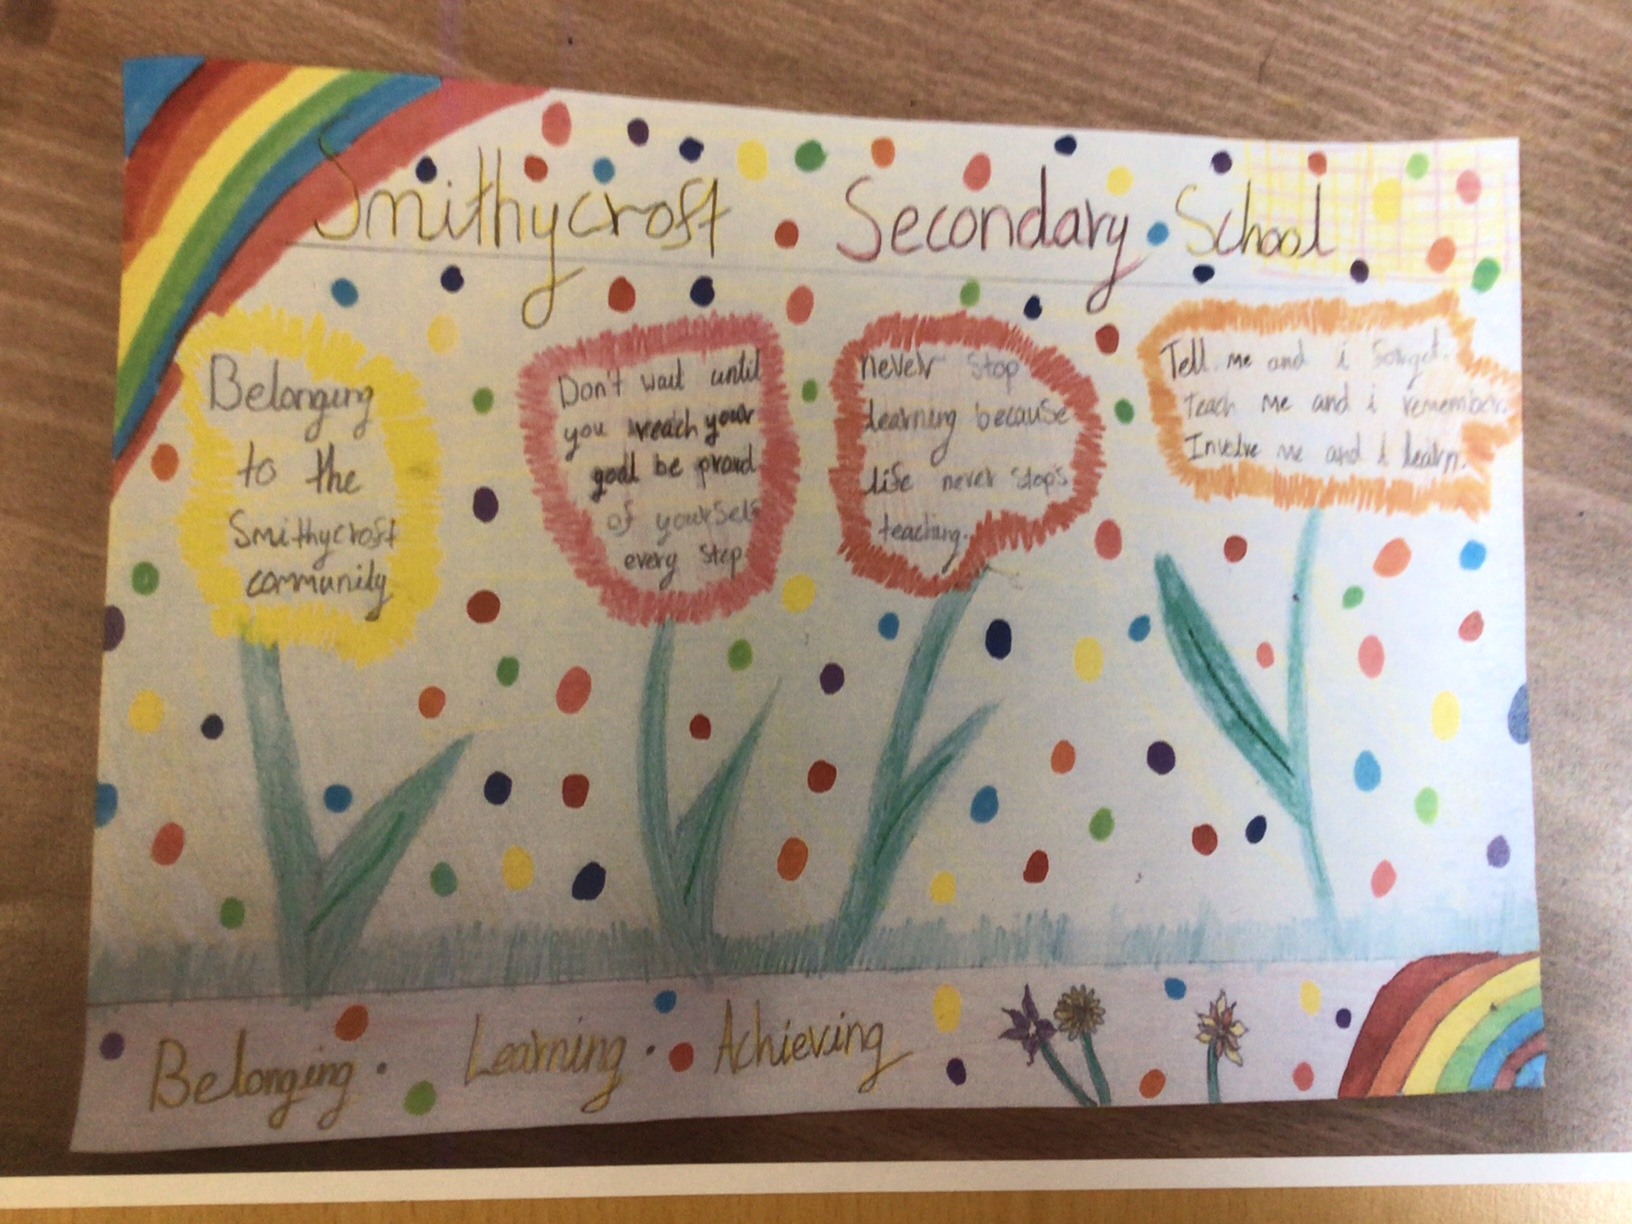 Smithycroft Secondary School
Belonging
to the
Smithycroft
community
Don't wait until
you reach your
goal be proud
of yourself
every step
never stop
learning because
life never stops
teaching.
Tell me and i forget.
Teach me and i remember.
Involve me and i learn.
Belonging. Learning. Achieving